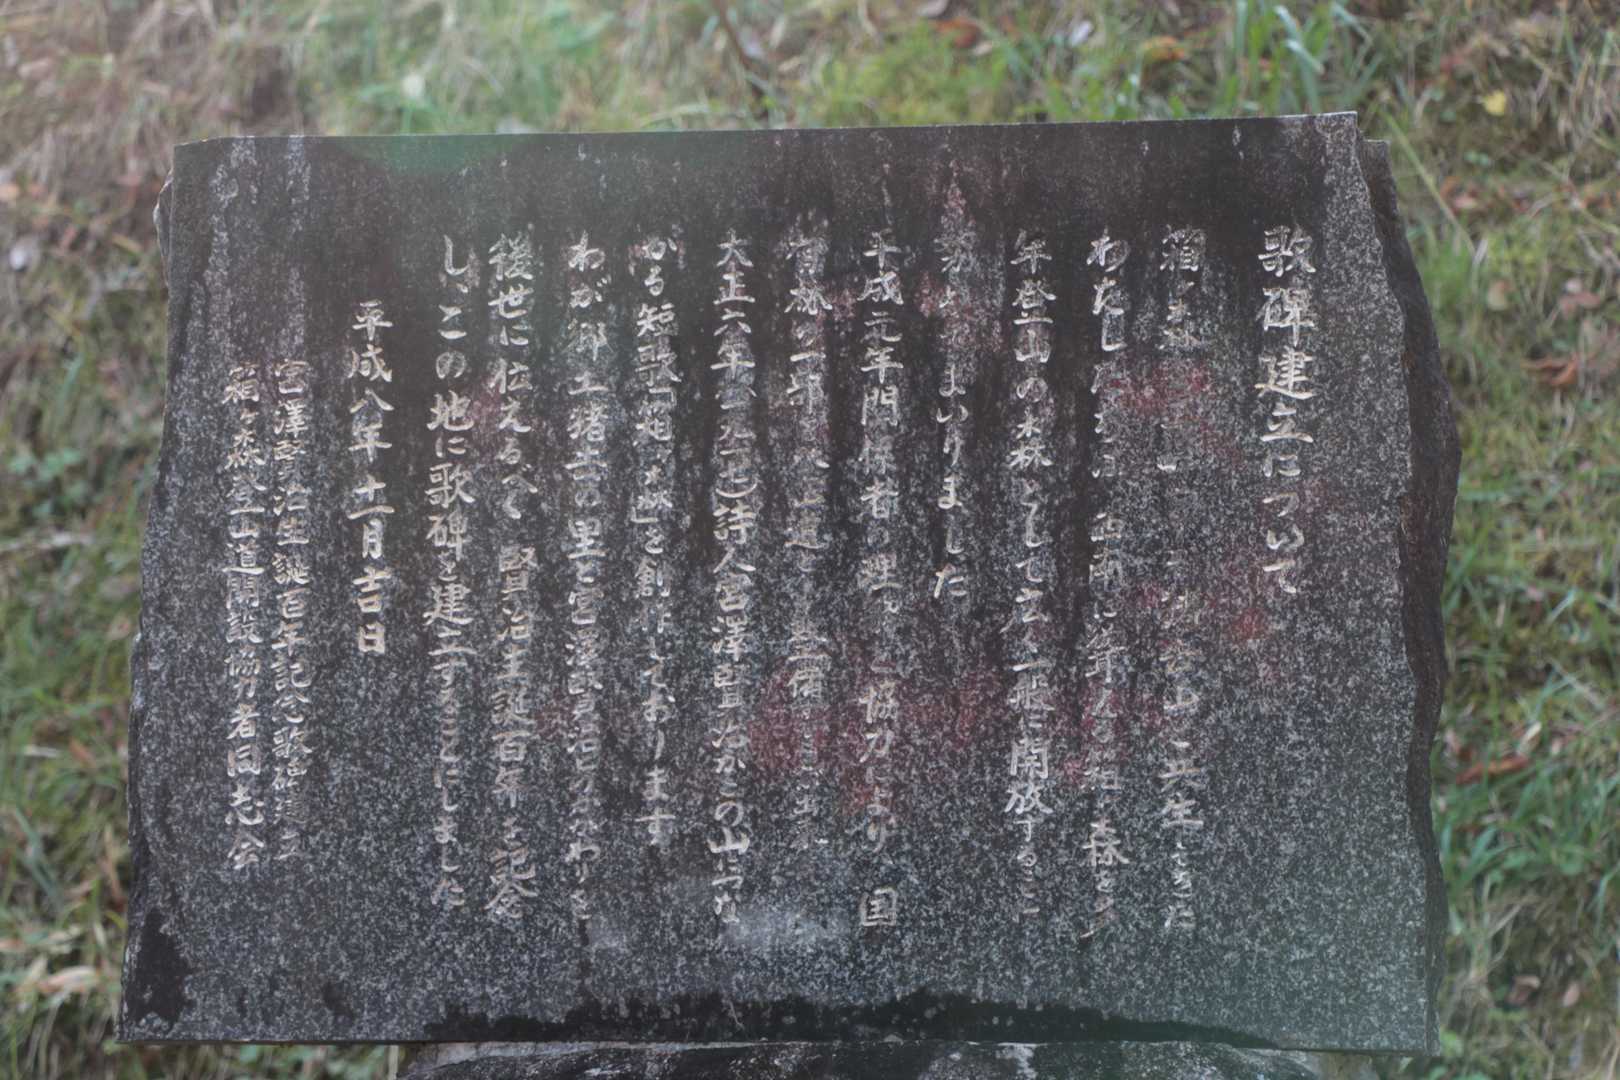 歌碑建立について
箱ヶ森 山と共生してきた
わたしたちは 西南に聳える箱ヶ森を多
年登山の森として広く一般に開放すること
努めてまいりました
平成元年関係者の理解と協力により 国
有林の一部 道を整備
大正六年(一九一七)詩人宮澤賢治がこの山につな
がる短歌「箱ヶ森」を創作しております
わが郷土猪去の里と宮澤賢治とのかかわりを
後世に伝えるべく 賢治生誕百年を記念
し、この地に歌碑を建立することにしました
平成八年十一月吉日
宮澤賢治生誕百年記念歌碑建立
箱ヶ森登山道開設協力者同志会